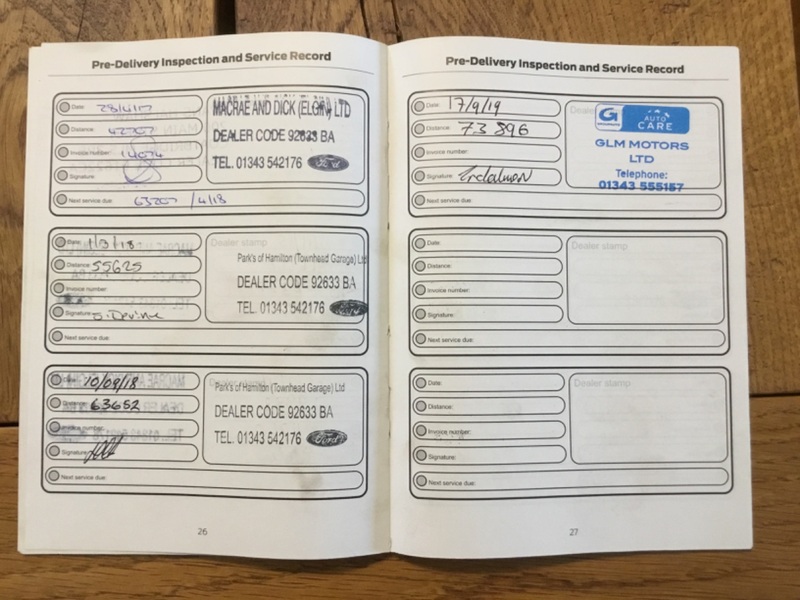 Pre-Delivery Inspection and Service Record
Date: 28/4/17
Distance: 42707
Invoice Number: 14074
Signature:
Next service due: 63207 /4/18
MACRAE AND DICK (ELGIN) LTD
DEALER CODE 92633 BA
TEL. 01343 542176
Ford
Date: 1/3/18
Distance: 55625
Invoice number:
Signature: S. Devine
Next service due:
Dealer stamp
Park's of Hamilton (Townhead Garage) Ltd
DEALER CODE 92633 BA
TEL. 01343 542176
Ford
Date: 10/09/18
Distance: 63652
Invoice number:
Signature:
Next service due:
Park's of Hamilton (Townhead Garage) Ltd
DEALER CODE 92633 BA
TEL. 01343 542176
Ford
26
Pre-Delivery Inspection and Service Record
Date: 17/9/19
Distance: 73896
Invoice number:
Signature:
Next service due:
Deale
G AUTO
CARE
GLM MOTORS
LTD
Telephone:
01343 555157
Date:
Distance:
Invoice number:
Signature:
Next service due:
Dealer stamp
Date:
Distance:
Invoice number:
Signature:
Next service due:
Dealer stamp
27